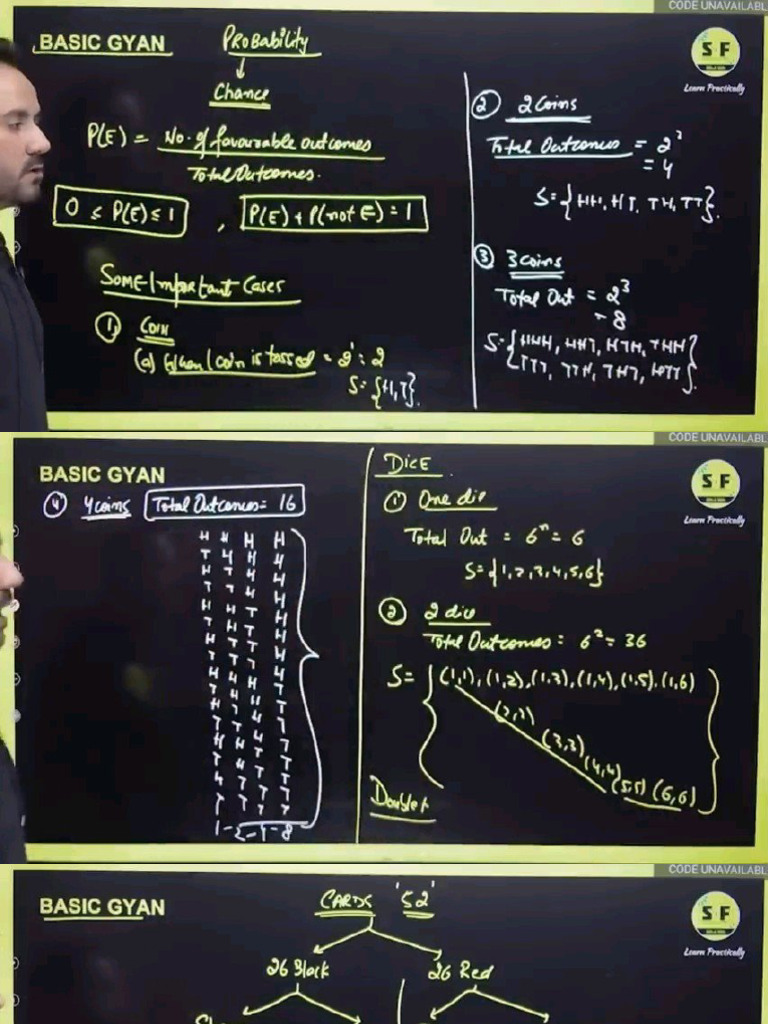 CODE UNAVAILABL
BASIC GYAN
Probability
Chance
P(E) = No. of favourable outcomes
Total Outcomes.
0 ≤ P(E) ≤ 1 , P(E) + P(not E) = 1
Some Important Cases
① Coin
(a) When 1 coin is tossed = 2¹ = 2
S = {H, T}.
SF
Learn Practically
② 2 Coins
Total Outcomes = 2²
= 4
S = {HH, HT, TH, TT}.
③ 3 coins
Total Out = 2³
= 8
S = {HHH, HHT, HTH, THH
TTT, TTH, THT, HTT}.
CODE UNAVAILABL
BASIC GYAN
④ 4 coins Total Outcomes = 16
H H H H
T H H H
H T H H
T T H H
H H T H
T H T H
H T T H
T T T H
H H H T
T H H T
H T H T
T T H T
H H T T
T H T T
H T T T
T T T T
1 - 2 - 4 - 8
DICE
① One die
Total Out = 6ⁿ = 6
S = {1, 2, 3, 4, 5, 6}
② 2 dice
Total Outcomes = 6² = 36
S = {(1,1), (1,2), (1,3), (1,4), (1,5), (1,6)
(2,2)
(3,3)
(4,4)
(5,5) (6,6)}
Doublet
SF
Learn Practically
CODE UNAVAILABL
BASIC GYAN
CARDS '52'
26 Black 26 Red
SF
Learn Practically